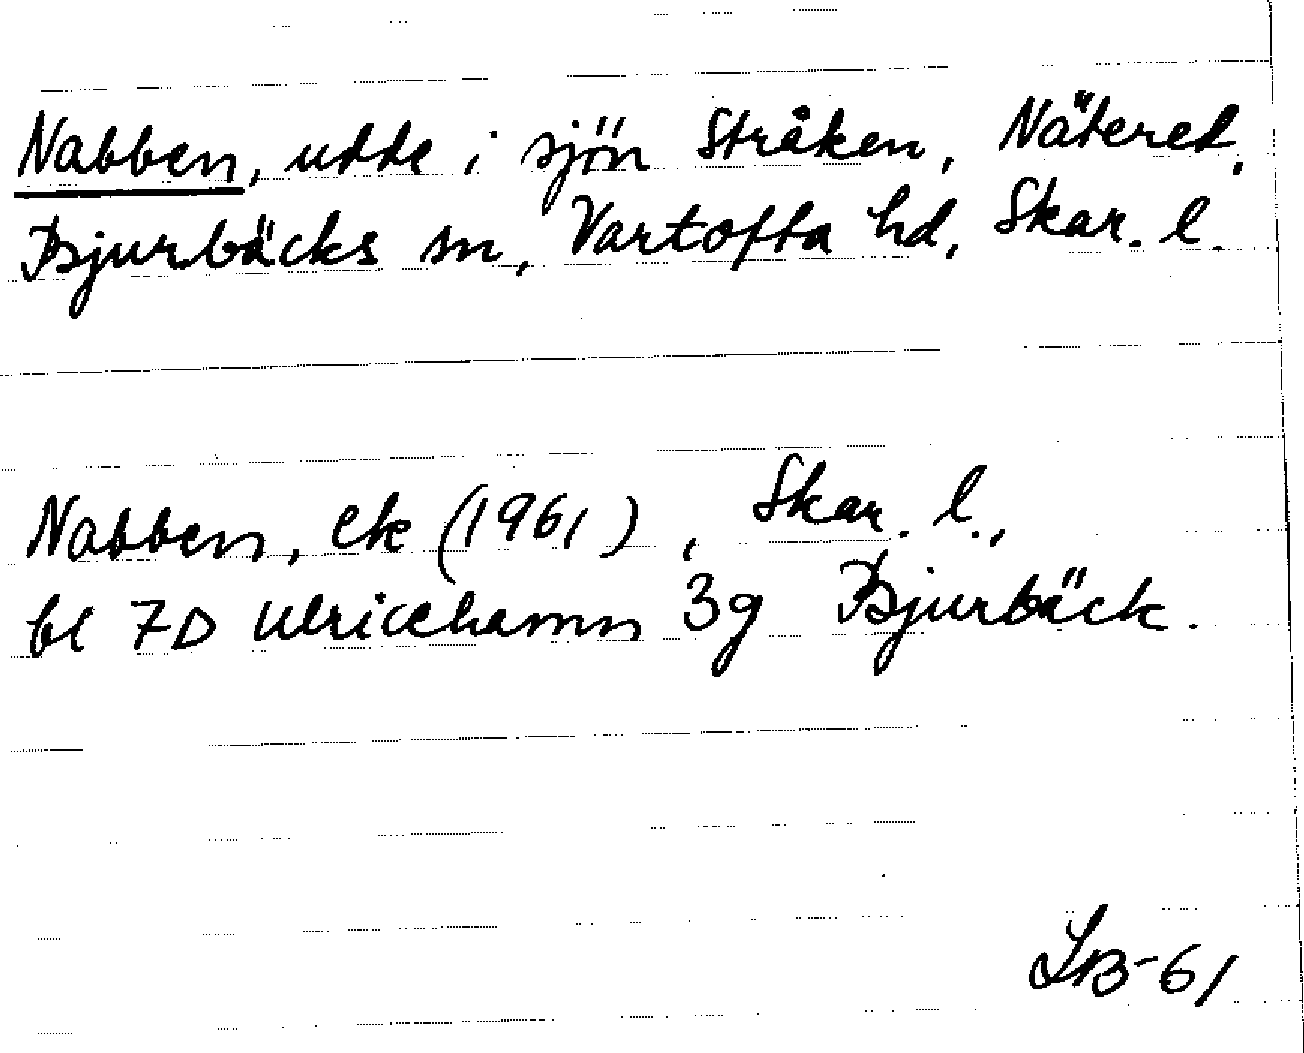 Nabben, udde i sjön Stråken, Nätered,
Bjurbäcks sn, Vartofta hd, Skar. l.
Nabben, ek (1961), Skar. l.,
bl 7D Ulricehamn 3g Bjurbäck.
LB-61